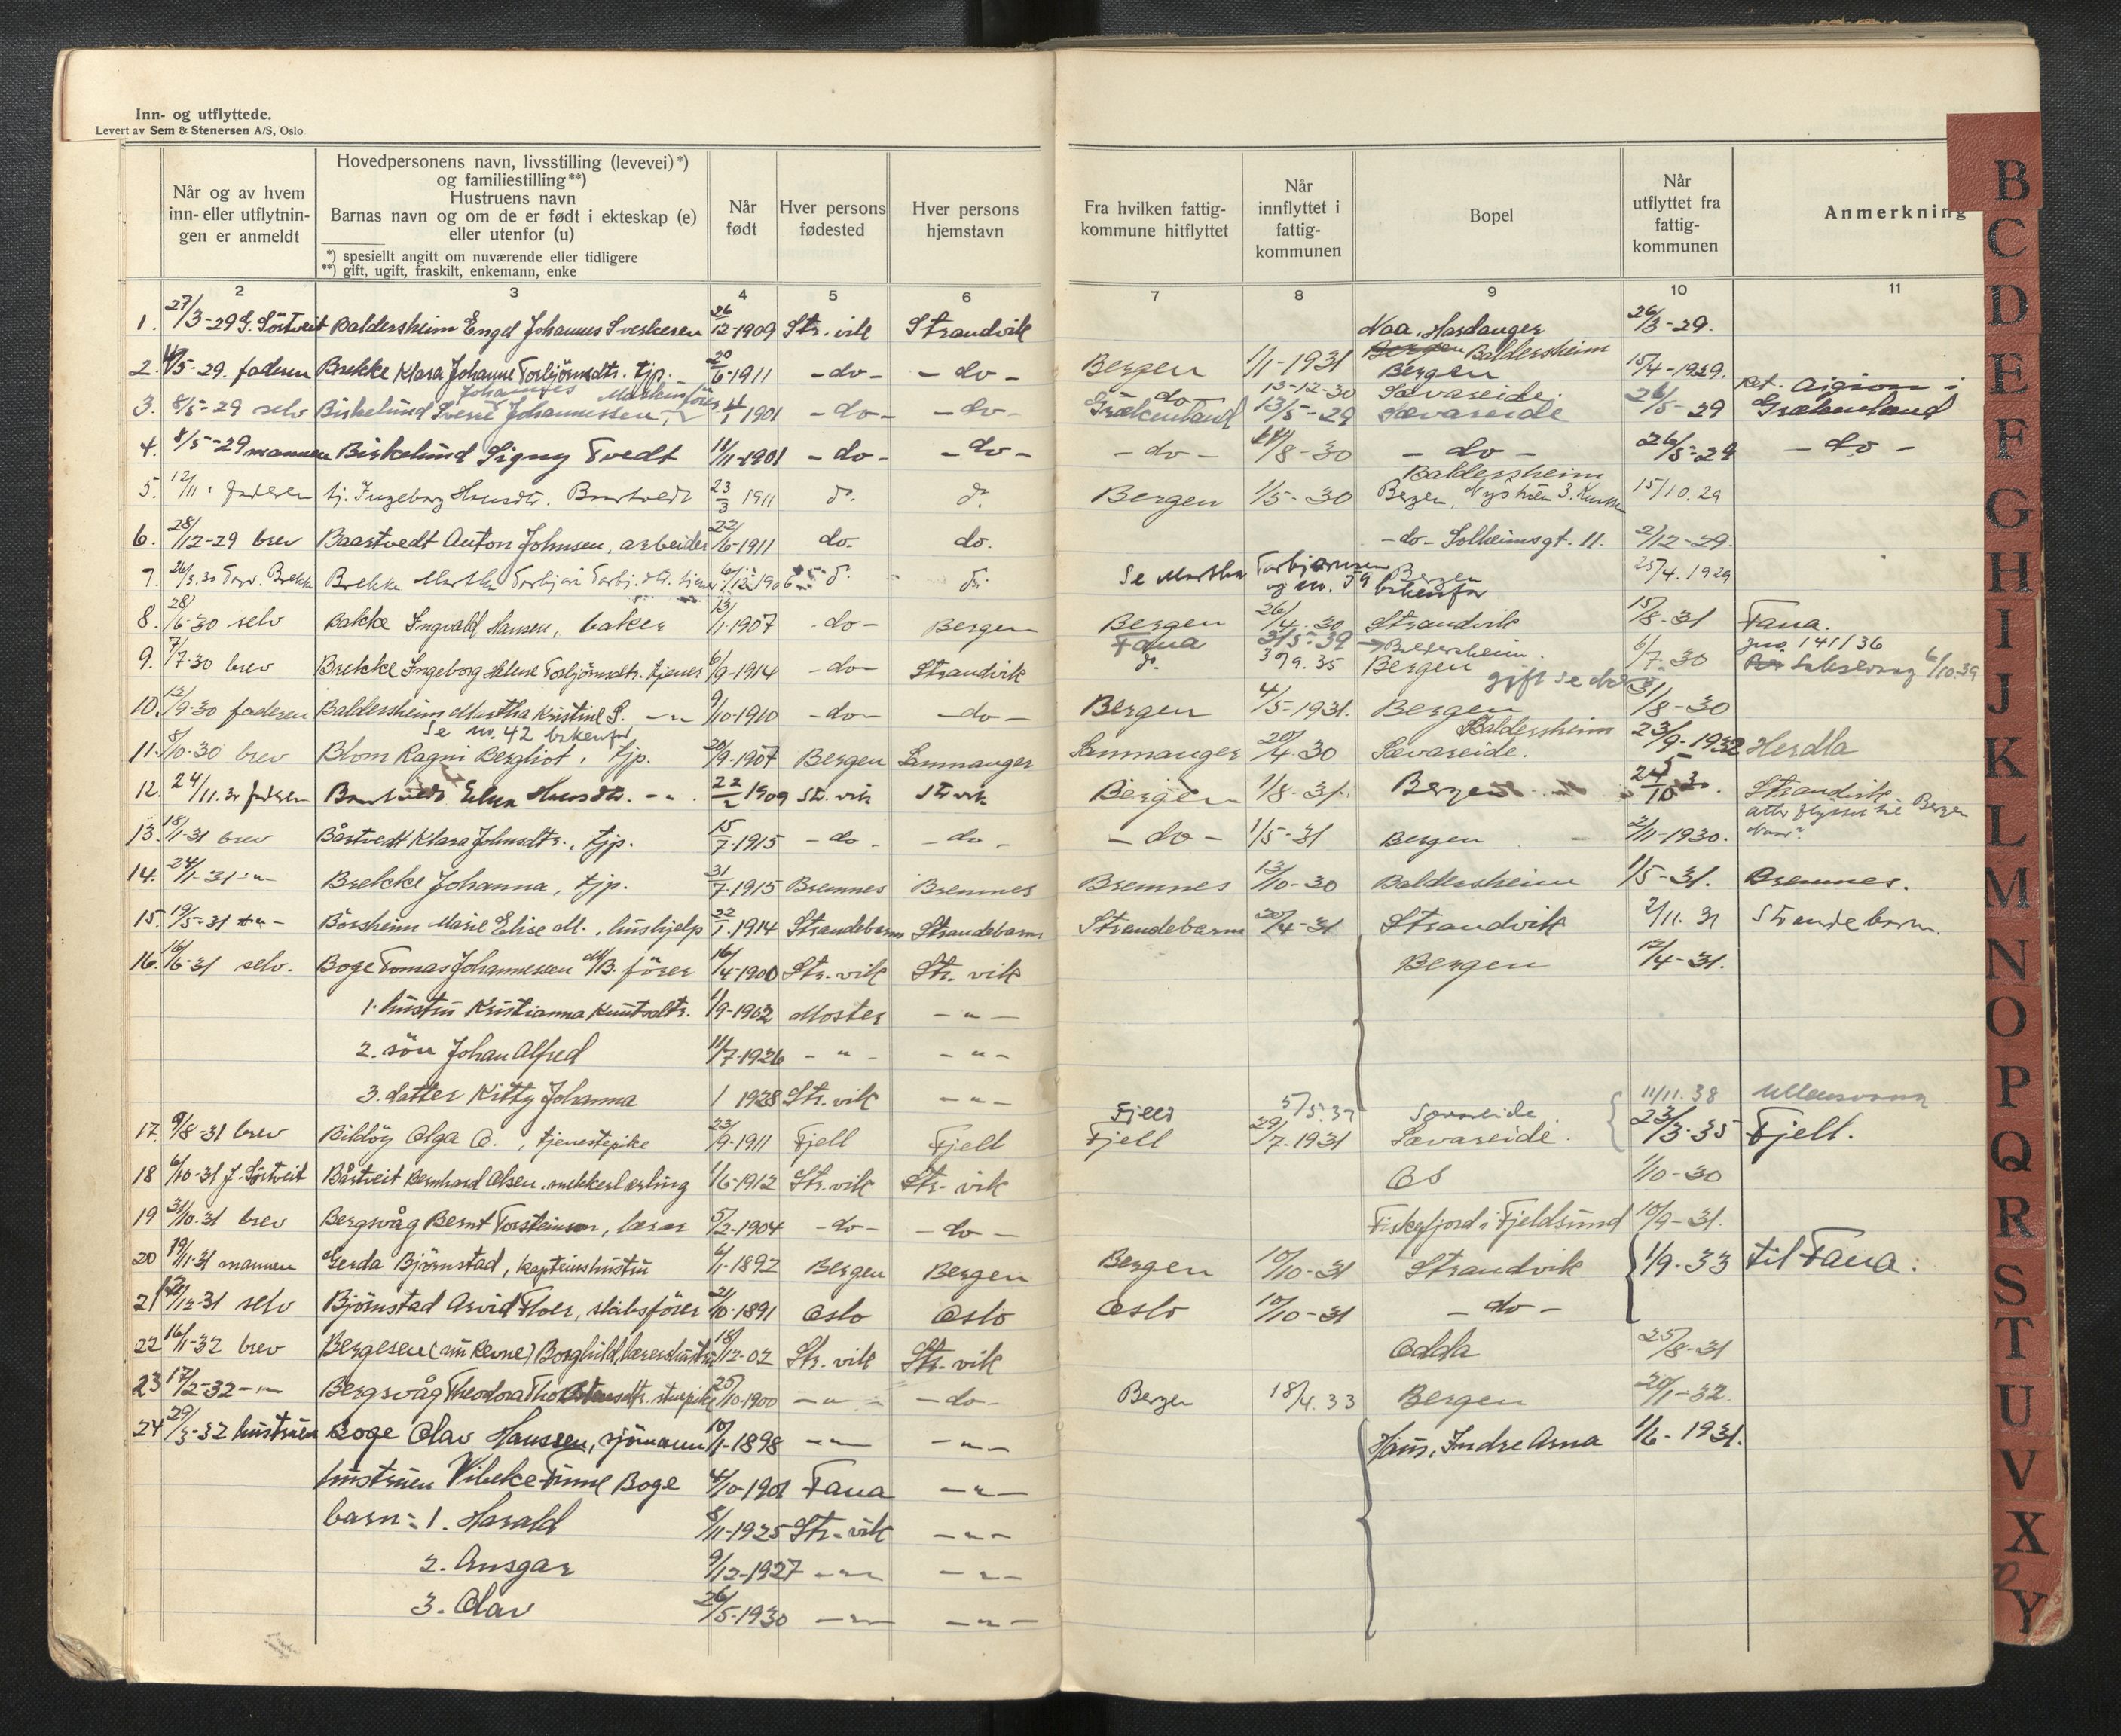 Inn- og utflyttede.
Levert av Sem & Stenersen A/S, Oslo
Når og av hvem inn- eller utflytnin- gen er anmeldt
Hovedpersonens navn, livsstilling (levevei)*)
og familiestilling**)
Hustruens navn
Barnas navn og om de er født i ekteskap (e)
eller utenfor (u)
*) spesiellt angitt om nuværende eller tidligere
**) gift, ugift, fraskilt, enkemann, enke
Når født
Hver persons fødested
Hver persons hjemstavn
Fra hvilken fattig- kommune hitflyttet
Når innflyttet i fattig- kommunen
Bopel
Når utflyttet fra fattig- kommunen
Anmerkning
2 3 4 5 6 7 8 9 10 11
1. 27/3-29 J. Sörtveit Baldersheim Engel Johannes Sveskesen 26/12-1909 Str. vik Strandvik Naa, Hardanger 26/3-29.
Bergen Baldersheim
2. 4/5-29. faderen Brekke Klara Johanne Torbjörnsdtr. tjp. 20/6-1911 -do- -do- Bergen 1/1-1931 Bergen 15/4-1929.
Johannes Maskinförer -do- 13-12-30 Sævareide. Aigion i
3. 8/5-29 selv Birkelund Sverre Johannessen 1901 -do- -do- Grækenland 13/5-29 Sævareide 26/5-29 Grækenland
4. 8/5-29 mannen Birkelund Signy Tvedt 11/11-1901 -do- -do- -do- /8-30 -do- 26/5-29 -do-
Baldersheim
5. 12/11 faderen tj. Ingeborg Hansdtr. Baartvedt 23/3 1911 do. do. Bergen 1/5-30 Bergen, 15/10.29
6. 28/12-29 brev Baartvedt Anton Johnsen, arbeider 22/6-1911 do. do. -do- Solheimsgt. 11. 2/12-29.
7. 26/3.30 Brekke Brekke Martha Torbjörnsdtr. do. do. Se Martha Torbjørnsen og no. 59 bakenfor Bergen 25/4.1929
8. 28/6-30 selv Bakke Ingvald Hansen, baker 13/1-1907 -do- Bergen Bergen 26/4.30 Strandvik 15/8-31 Fana.
Fana 31/5-39 Baldersheim. Jno. 141/36
9. 7/7-30 brev Brekke Ingeborg Helene Torbjörnsdtr. tjener 6/9-1914 -do- Strandvik do. 30/9.35 Bergen 6/7.30 6/10.39
gift se
10. 13/9-30 faderen Baldersheim Martha Kristine S. -"- 9/10-1910 -do- -do- Bergen 4/5-1931. Bergen 31/8-30
Se no. 42 bakenfor Baldersheim
11. 8/10-30 brev Blom Ragni Bergliot, tjp. 20/9-1907 Bergen Samnanger Samnanger 20/4-30 Sævareide. 23/9-1932 Herdla
12. 24/11.30 faderen Baartvedt Hansdtr. -"- 22/2 1909 Str. vik Str vik Bergen 1/8-31. Bergen 24/10 30. Strandvik
atter flyttet til Bergen
13. 18/1-31 brev Bårtvedt Klara Johnsdtr., tjp. 15/7-1915 -do- -do- -do- 1/5-31 Bergen 2/11-1930. Naar?
14. 24/1-31 -"- Brekke Johanna, tjp. 31/7-1915 Bremnes Bremnes Bremnes 13/10-30 Baldersheim 1/5-31. Bremnes.
15. 19/5-31 -"- Börsheim Marie Elise M., hushjelp 22/1-1914 Strandebarm Strandebarm Strandebarm 20/4-31 Strandvik 2/11.31 Strandebarm.
16. 16/6-31 selv. Boge Tomas Johannessen M/B. förer 16/4-1900 Str. vik Str. vik Bergen 12/4-31.
1. hustru Kristianna Knutsdtr. 1/9-1902 Moster -"-
2. sön Johan Alfred 11/7-1926 -"- -"-
3. datter Kitty Johanna 1 1928 Str. vik -"-
Fjell 5/5.37 Sævareide 11/11.38 Ullensvang
17. 9/8-31 brev Bildöy Olga O., tjenestepike 23/9-1911 Fjell Fjell Fjell 29/7-1931 Sævareide. 23/3-35 Fjell.
18 6/10-31 J. Sörtveit Bårtveit Bernhard Olsen, snekkerlærling 1/6-1912 Str. vik Str. vik Os 1/10-30
19 31/10-31 brev Bergsvåg Bernt Torsteinson, lærer 5/2-1904 -do- -do- Fiskefjord i Fjeldsund 10/9-31.
20 19/11-31 mannen Gerda Björnstad, kapteinshustru 6/1-1892 Bergen Bergen Bergen 10/10-31 Strandvik 1/9-33 til Fana.
21 12/12-31 selv Björnstad Arvid Floer, skibsförer 21/10-1891 Oslo Oslo Oslo 10/10-31 -do-
22 16/1-32 brev Bergesen (nu Kevne) Borghild, lærershustru 18/12-02 Str. vik Str. vik Odda 25/8-31
23 17/2-32 -"- Bergsvåg Theodora Thorsteinsdtr. stuepike 25/10-1900 -"- -do- Bergen 18/4.33 Bergen 20/1-32.
24 29/3-32 hustruen Boge Olav Hanssen, sjömann 10/1-1898 -"- -"- Haus, Indre Arna 1/6-1931.
hustruen Vibeke Finne Boge 4/10-1901 Fana -"-
barn: 1. Harald 8/11-1925 Str. vik -"-
2. Ansgar 9/12-1927 -"- -"-
3. Olav 26/5-1930 -"- -"-
B
C
D
E
F
G
H
I
J
K
L
M
N
O
P
Q
R
S
T
U
V
X
Y